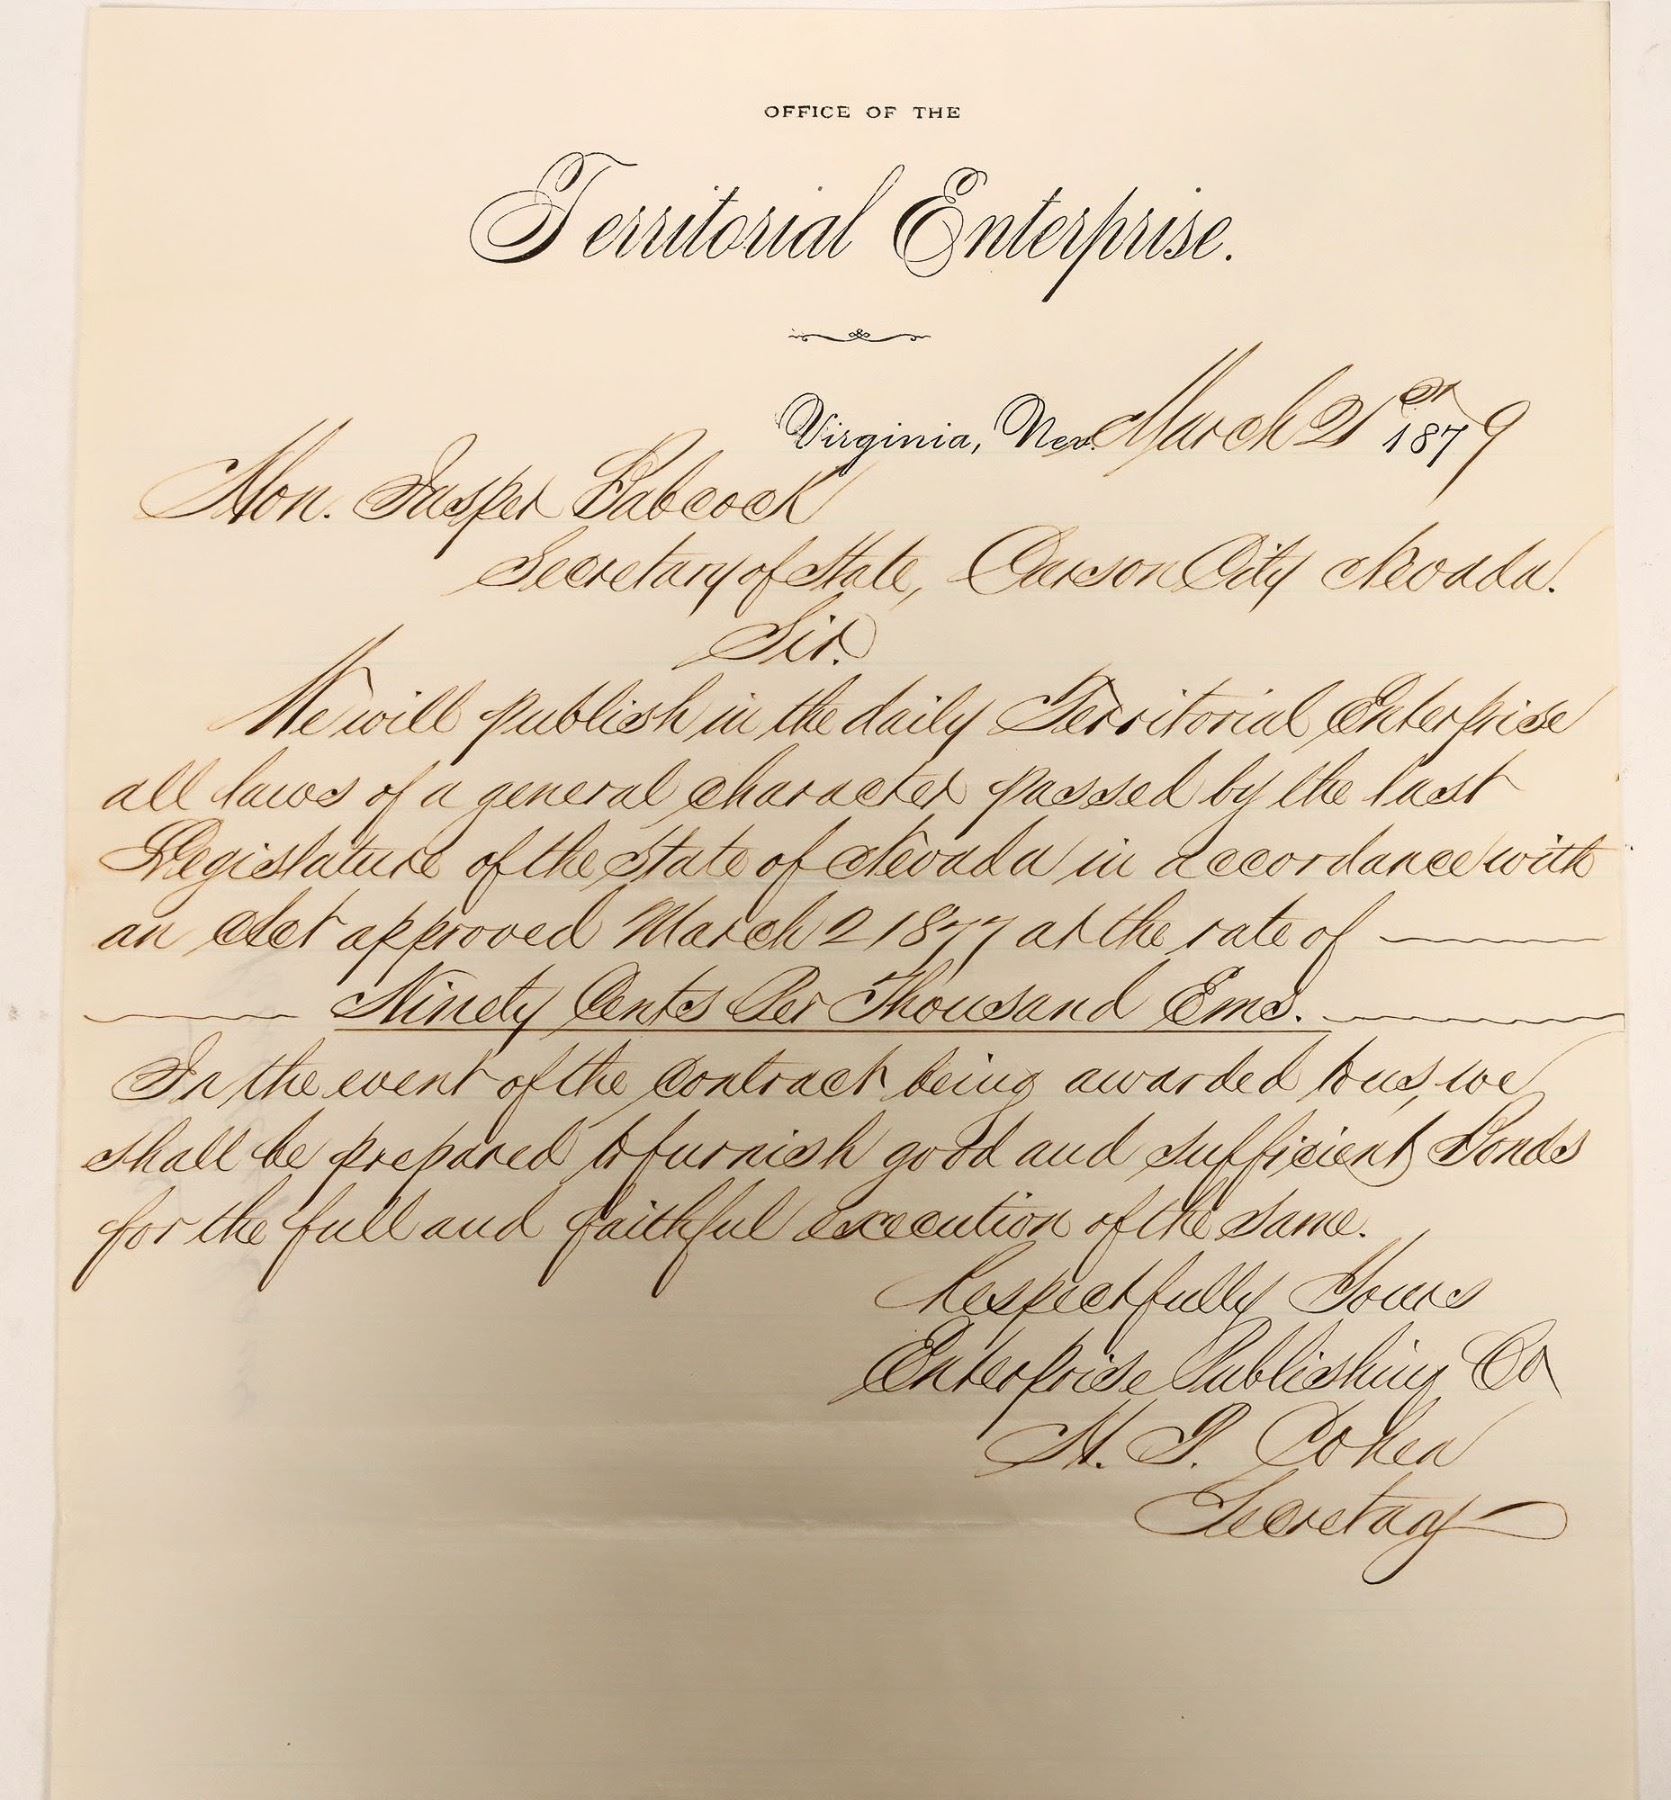 OFFICE OF THE
Territorial Enterprise.
Virginia, Nev. March 21st 1879
Hon. Jasper Babcock
Secretary of State, Carson City Nevada.
Sir.
We will publish in the daily Territorial Enterprise
all laws of a general character passed by the last
Legislature of the State of Nevada in accordance with
an Act approved March 2 1877 at the rate of
Ninety Cents Per Thousand Ems.
In the event of the Contract being awarded to us, we
shall be prepared to furnish good and sufficient Bonds
for the full and faithful execution of the same.
Respectfully Yours
Enterprise Publishing Co
H. P. Cohen
Secretary